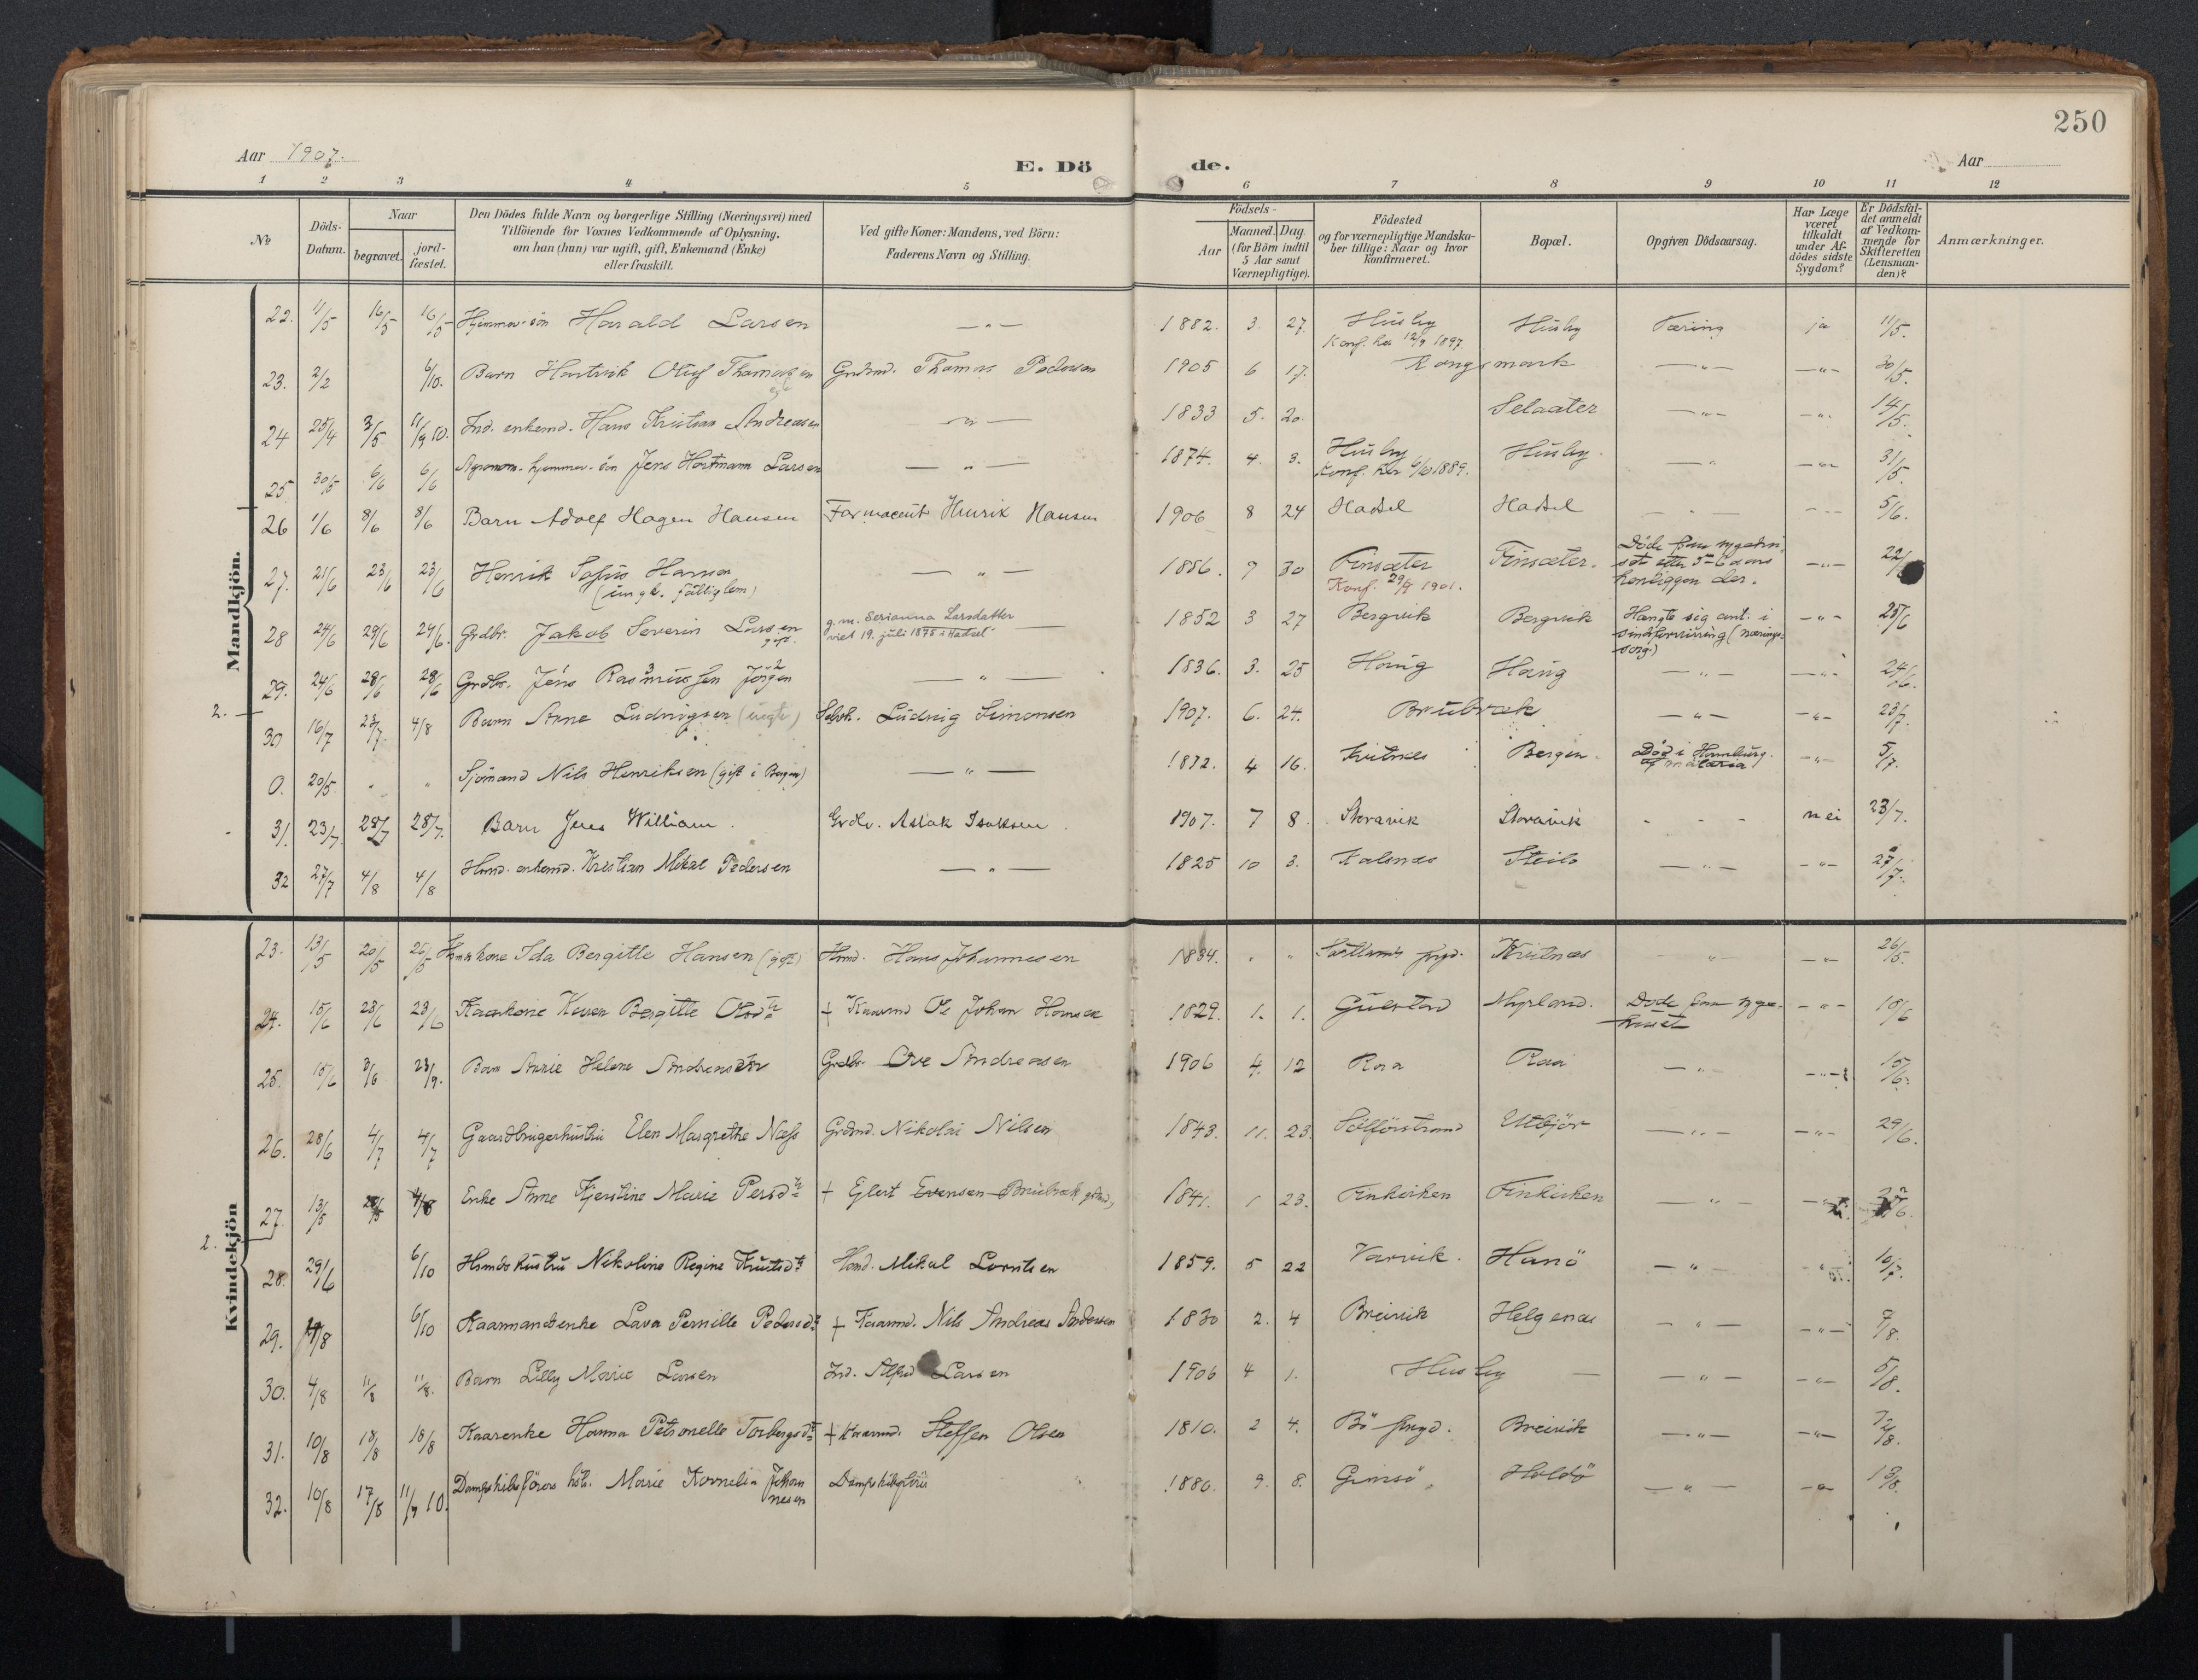 250
Aar 1907.
E. Döde.
Aar
1 2 3 4 5 6 7 8 9 10 11 12
No
Döds-Datum.
Naar
begravet.
jord-fæstet.
Den Dödes fulde Navn og borgerlige Stilling (Næringsvei) med
Tilföiende for Voxnes Vedkommende af Oplysning,
om han (hun) var ugift, gift, Enkemand (Enke)
eller fraskilt.
Ved gifte Koner: Mandens, ved Börn:
Faderens Navn og Stilling.
Födsels-
Aar
Maaned. Dag.
(for Börn indtil
5 Aar samt
Værnepligtige).
Födested
og for værnepligtige Mandska-
ber tillige: Naar og hvor
konfirmeret.
Bopæl.
Opgiven Dödsaarsag.
Har Læge
været
tilkaldt
under Af-
dödes sidste
Sygdom?
Er Dödsfal-
det anmeldt
af Vedkom-
mende for
Skifteretten
(Lensman-
den)?
Anmærkninger.
Mandkjön.
22. 11/5 16/5 16/5 Hjemmev. sön Harald Larsen — " — 1882. 3. 27. Husby Husby Tæring ja 11/5.
Konf. her 12/9 1897.
23. 2/2 6/10. Barn Hartvik Oluf Thomassen Grdmd. Thomas Pedersen 1905 6 17. Kongsmark — " — — " — 30/5.
24 25/4 3/5 11/9 10. Ind. enkemd. Hans Kristian Andreasen — " — 1833 5. 20. Selaater — " — — " — 14/5.
25 30/5 6/6 6/6 Agronom. hjemmev. sön Jens Hartmann Larsen — " — 1874. 4. 3. Husby Husby. — " — — " — 31/5.
Konf. her 6/10 1889.
26 1/6 8/6 8/6 Barn Adolf Hagen Hansen Farmaceut Henrik Hansen 1906 8 24 Hadsel Hadsel — " — — " — 5/6.
27. 21/6 23/6 23/6 Henrik Sofus Hansen — " — 1886. 9 30 Finsæter Finsæter. — " — 22/
(ungk. fattiglem) Konf. 29/9 1901.
28 24/6 29/6 29/6. Grdbr. Jakob Severin Larsen 1852 3 27 Bergvik Bergvik Hængte sig ant. i — " — 25/6
gift. g.m. Serianna Larsdatter
viet 19. juli 1875 i Hadsel sindsforvirring (nærings-
sorg.)
29. 24/6 28/6 28/6 Grdbr. Jens Rasmussen Jörgen — " — 1836. 3. 25 Haug Haug — " — — " — 24/6.
2.
30 16/7 23/7. 4/8 Barn Arne Ludvigsen Ludvig Simonsen 1907. 6. 24. Brubræk — " — — " — 23/7.
0. 20/5. " " Sjömand Nils Henriksen (gift i Bergen) — " — 1872. 4 16. Kvitnes Bergen. Död i Hamburg. — " — 5/7.
af malaria
31. 23/7 28/7 28/7. Barn Jens William. Grdbr. Aslak Isaksen. 1907. 7 8. Storavik Storavik - - - nei 23/7.
32 27/7 4/8 4/8 Hmd. enkemd. Kristian Mikal Pedersen — " — 1825 10 3. Kalsnæs Steilo — " — — " — 27/7.
Kvindekjön
23. 13/5 20/5 26/5 Ida Bergitte Hansen (gift) Hmd. Hans Johannesen 1834. " " Sortlands prgd. Kvitnæs — " — — " — 26/5.
24. 15/6 23/6 23/6 Kaarkone Karen Bergitte Olsdtr + Kaarmd Ole Johan Hansen 1829. 1. 1. Guvstad Myrland. — " — 18/6
25. 15/6 23/9. Barn Marie Helene Andreasdtr Grdbr. Ove Andreasen 1906 4. 12 Raa Raa — " — — " — 15/6.
26. 28/6 4/7 4/7 Gaardbrugerhustru Elen Margrethe Næss Grdmd. Nikolai Nilsen 1843. 11. 23. Sölförstrand Utbjör — " — — " — 29/6.
2.
27. 13/5 4/8 Enke Anne Kjerstine Marie Persdtr + Ejlert Evensen Brubræk 1841. 1 23. Finkirken Finkirken — " —
28. 29/6 6/10 Hmds hustru Nikoline Regine Knutsdtr Hmd. Mikal Lorntsen 1859. 5 22 Varvik. Hanö — " — — " — 10/7.
29. 4/8 6/10 Kaarmandsenke Lava Pernille Pedersdtr + Kaarmd. Nils Andreas Andersen 1830 2. 4 Breivik Helgenæs — " — — " — 9/8.
30. 4/8 11/8 11/8. Barn Lilly Marie Larsen Ind. Alfred Larsen 1906 4 1. Husby — — " — — " — 5/8.
31. 10/8 18/8 18/8 Kaarenke Hanna Petronelle Torbergsdtr + Kaarmd. Steffen Olsen 1810. 2 4. Bö prgd. Breivik — " — — " — 12/8.
32. 10/8 17/8 11/9 10. Dampskibsförers hst. Marie Kornelia Johannesen Dampskibsförer 1880. 9. 8. Gimsö. Holdö — " — — " — 13/8.